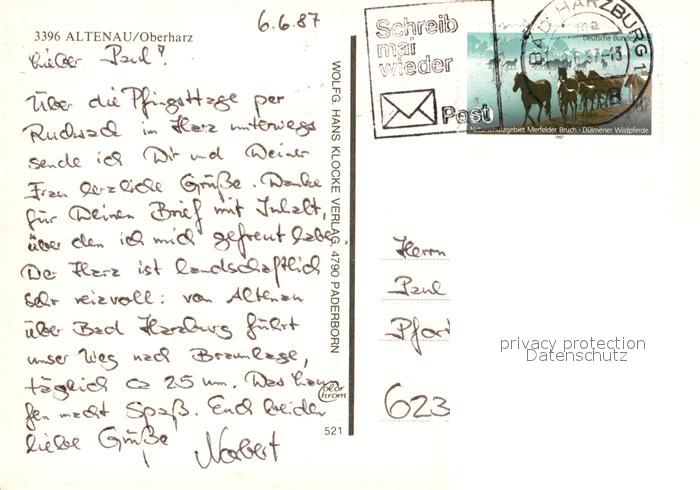 6.6.87
3396 ALTENAU/Oberharz
Lieber Paul!
Über die Pfingsttage per
Rucksack im Harz unterwegs
sende ich Dir und Deiner
Frau herzliche Grüße. Danke
für Deinen Brief mit Inhalt,
über den ich mich gefreut habe.
Der Harz ist landschaftlich
sehr reizvoll: von Altenau
über Bad Harzburg führt
unser Weg nach Braunlage,
täglich ca 25 km. Das Lau-
fen macht Spaß. Euch beiden
liebe Grüße
Norbert
WOLFG. HANS KLOCKE VERLAG, 4790 PADERBORN
Color
chrom
521
Schreib
mal
wieder
Post
BAD HARZBURG 1
Deutsche Bundes
Naturschutzgebiet Merfelder Bruch · Dülmener Wildpferde
1987
Herrn
Paul
623
privacy protection
Datenschutz